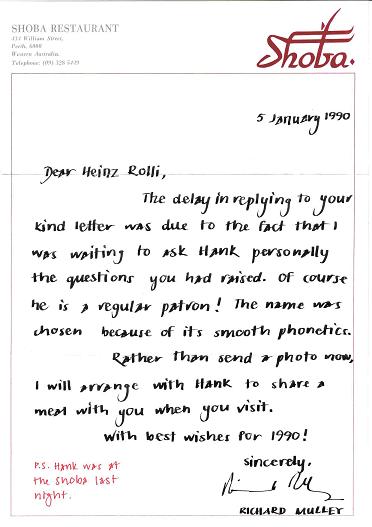 SHOBA RESTAURANT
434 William Street,
Perth, 6000
Western Australia.
Telephone: (09) 328 5449
Shoba.
5 January 1990
Dear Heinz Rolli,
The delay in replying to your
kind letter was due to the fact that I
was waiting to ask Hank personally
the questions you had raised. Of course
he is a regular patron! The name was
chosen because of its smooth phonetics.
Rather than send a photo now,
I will arrange with Hank to share a
meal with you when you visit.
With best wishes for 1990!
sincerely.
P.S. Hank was at
the Shoba last
night.
RICHARD MULLEY